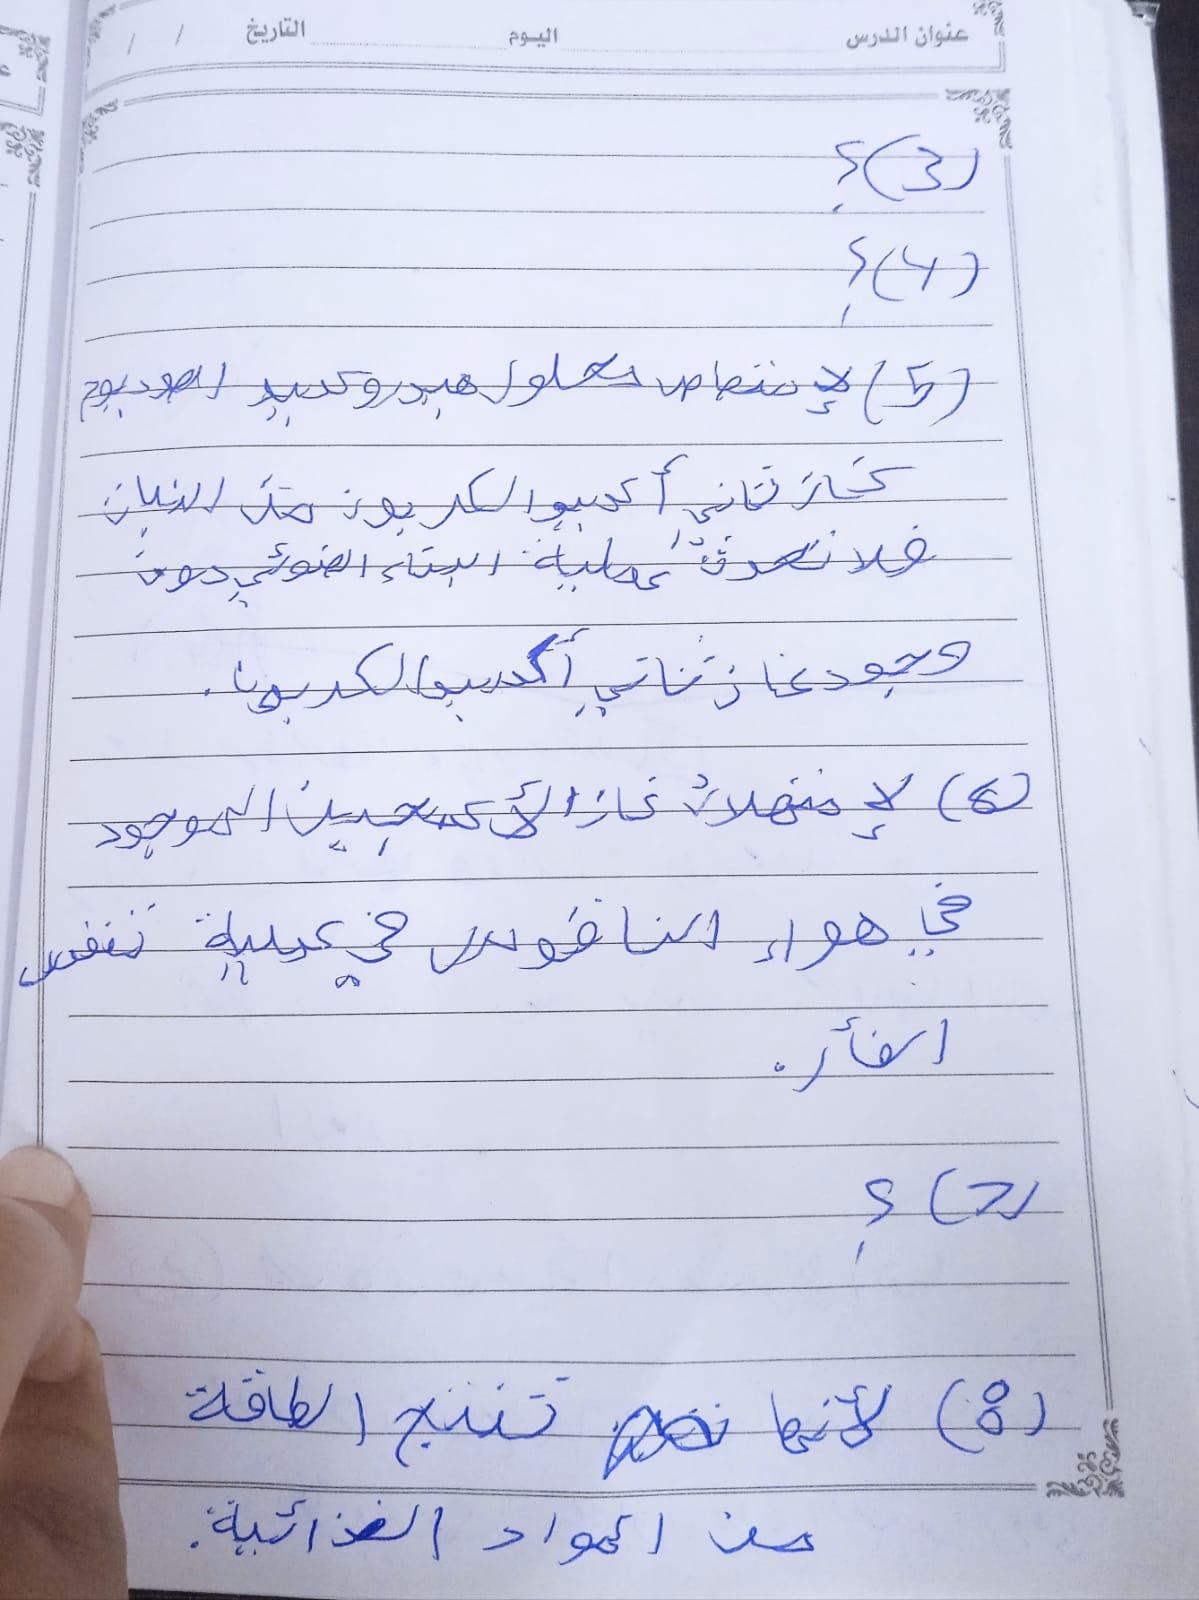 عنوان الدرس اليوم التاريخ / /
(3) ؟
(4) ؟
(5) لإمتصاص محلول هيدروكسيد الصوديوم
غاز ثاني أكسيد الكربون من النبات
فلا تحدث عملية البناء الضوئي دون
وجود غاز ثاني أكسيد الكربون.
(6) لإستهلاك غاز الأكسجين الموجود
في هواء الناقوس في عملية تنفس
الفأر.
(7) ؟
(8) لأنها تنتج الطاقة
من المواد الغذائية.